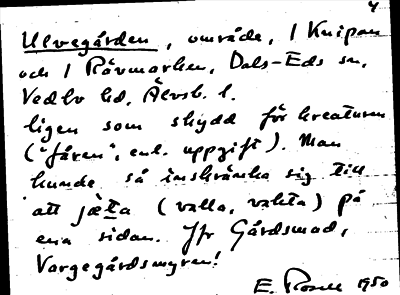 4
Ulvegården, område, I Knipan
och I Rävmarken, Dals-Eds sn,
Vedbo hd, Älvsb. l.
ligen som skydd för kreaturen
("fåren", enl. uppgift). Man
kunde så inskränka sig till
att jæta (valla, vakta) på
ena sidan. Jfr Gårdsmad,
Vargegårdsmyren!
E. 1950